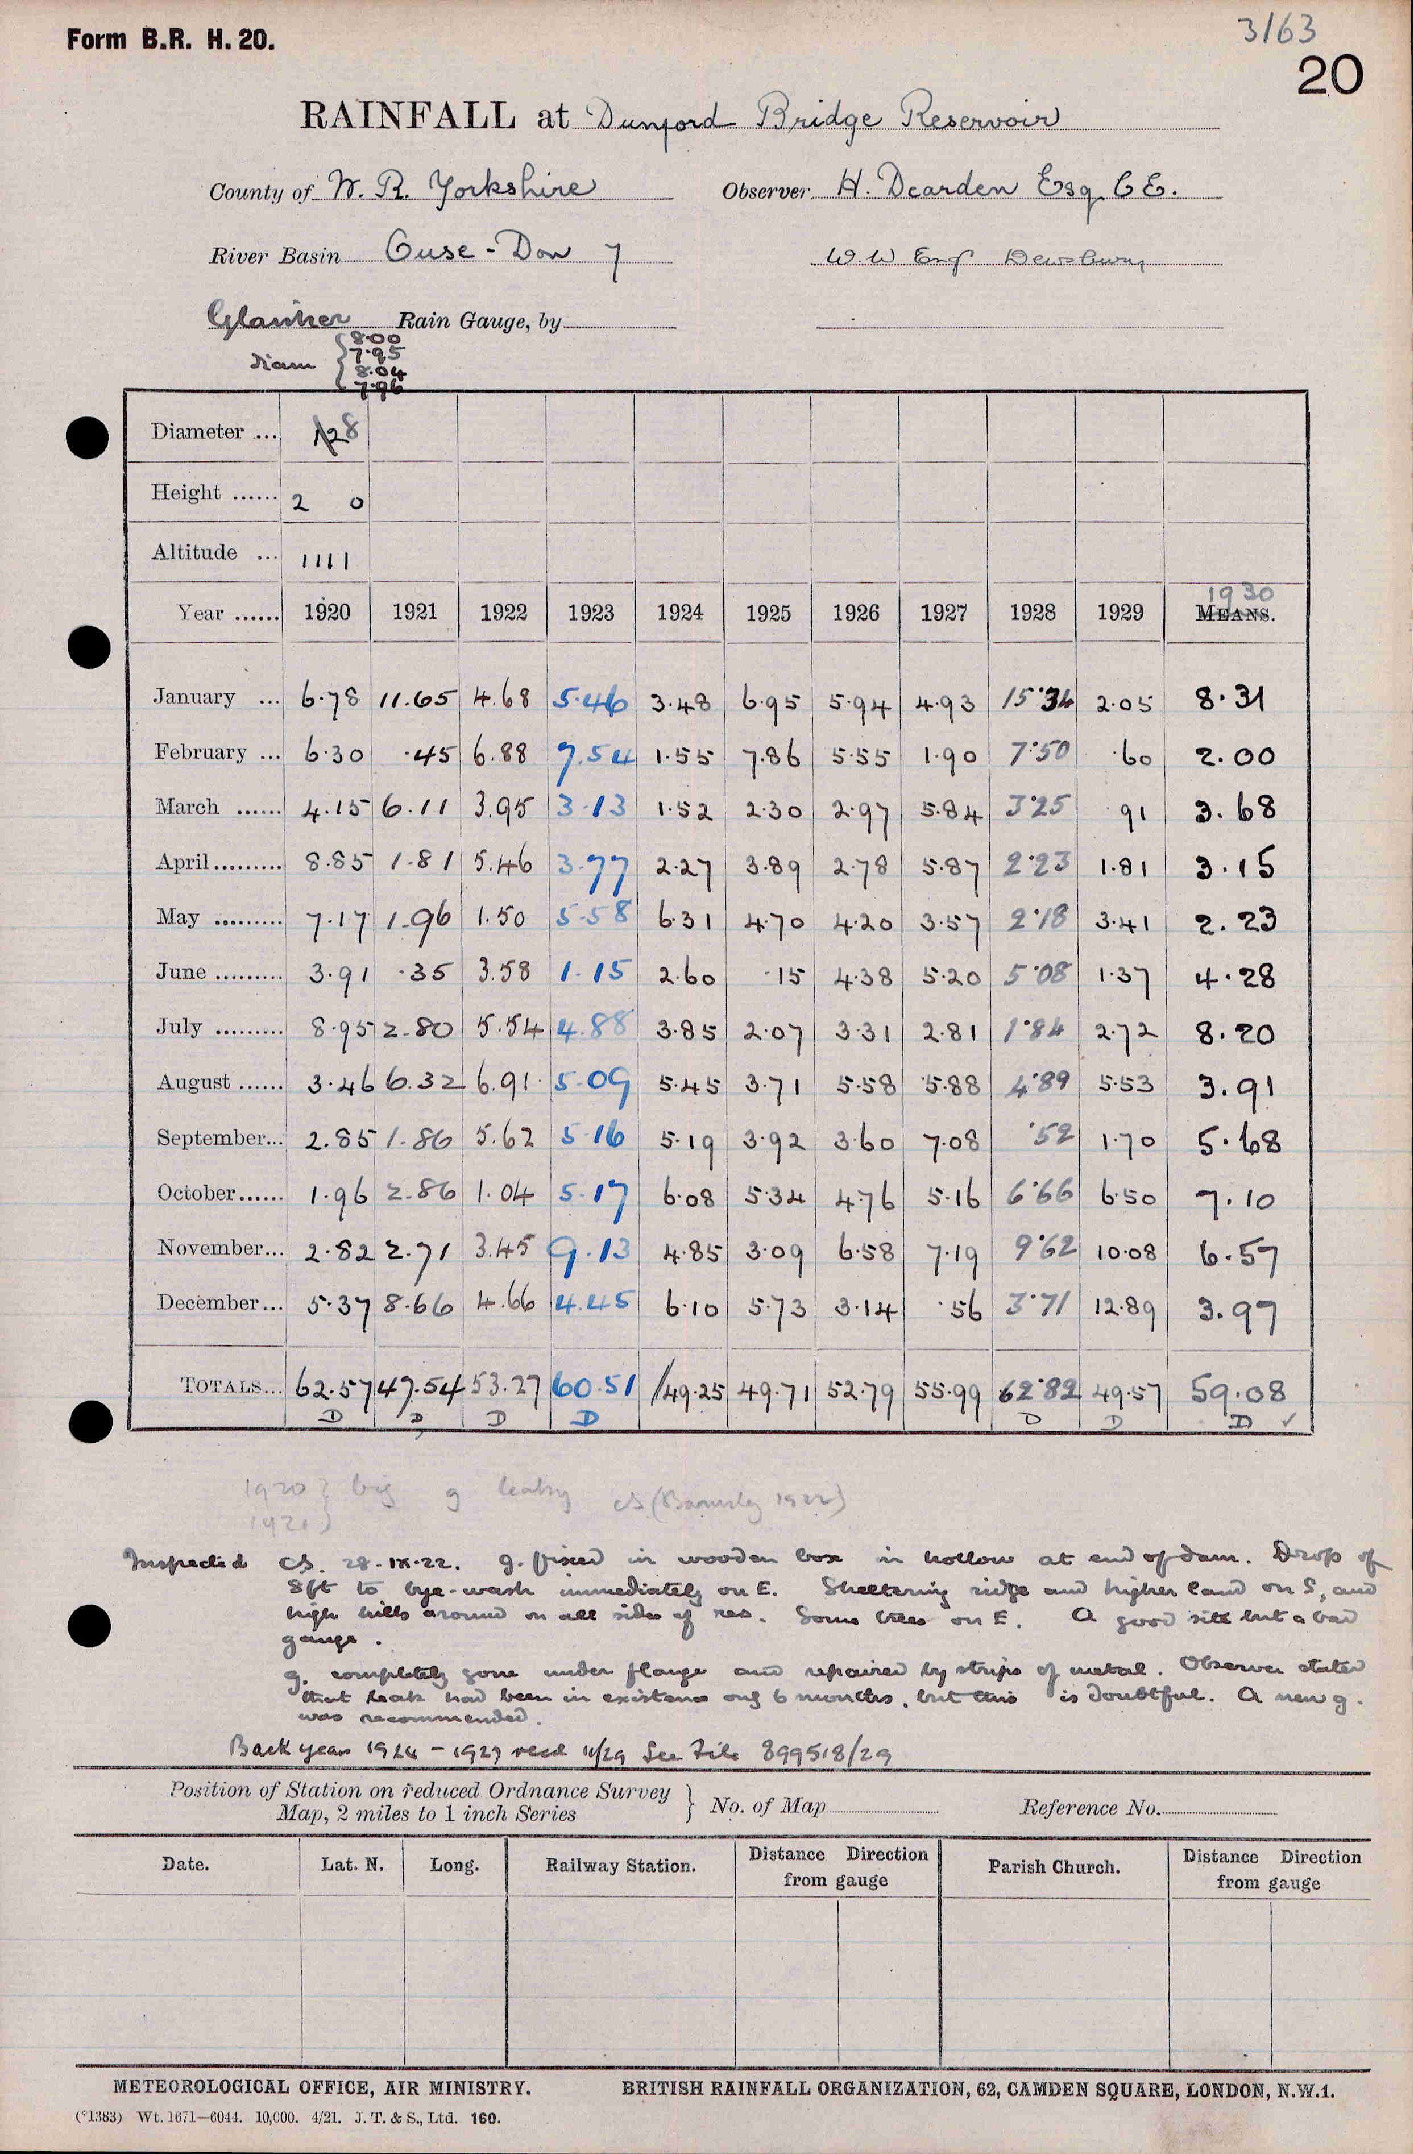 Form B.R. H. 20.
3163
20
RAINFALL at Dunford Bridge Reservoir
County of W. R. Yorkshire Observer H. Dearden Esq CE.
River Basin Ouse - Don 7 W W Eng Dewsbury
Glaisher Rain Gauge, by
diam { 8.00
7.95
8.04
7.96
Diameter ... 8
Height ...... 2 0
Altitude ... 1111
1930
Year ...... 1920 1921 1922 1923 1924 1925 1926 1927 1928 1929 MEANS.
January ... 6.78 11.65 4.68 5.46 3.48 6.95 5.94 4.93 15.34 2.05 8.31
February ... 6.30 .45 6.88 7.54 1.55 7.86 5.55 1.90 7.50 .60 2.00
March ...... 4.15 6.11 3.95 3.13 1.52 2.30 2.97 5.84 3.25 91 3.68
April......... 8.85 1.81 5.46 3.77 2.27 3.89 2.78 5.87 2.23 1.81 3.15
May ......... 7.17 1.96 1.50 5.58 6.31 4.70 4.20 3.57 2.18 3.41 2.23
June ......... 3.91 .35 3.58 1.15 2.60 .15 4.38 5.20 5.08 1.37 4.28
July ......... 8.95 2.80 5.54 4.88 3.85 2.07 3.31 2.81 1.84 2.72 8.20
August ...... 3.46 6.32 6.91 5.09 5.45 3.71 5.58 5.88 4.89 5.53 3.91
September... 2.85 1.86 5.62 5.16 5.19 3.92 3.60 7.08 .52 1.70 5.68
October...... 1.96 2.86 1.04 5.17 6.08 5.34 4.76 5.16 6.66 6.50 7.10
November... 2.82 2.71 3.45 9.13 4.85 3.09 6.58 7.19 9.62 10.08 6.57
December... 5.37 8.66 4.66 4.45 6.10 5.73 3.14 .56 3.71 12.89 3.97
TOTALS... 62.57 47.54 53.27 60.51 /49.25 49.71 52.79 55.99 62.82 49.57 59.08
D D D D D D D ✓
1920 } big g leaky CS (Barnsley 1922)
1921 }
Inspected CS. 28.IX.22. g. fixed in wooden box in hollow at end of dam. Drop of
8ft to bye-wash immediately on E. Sheltering ridge and higher land on S, and
high hills around on all sides of res. Some trees on E. A good site but a bad
gauge.
g. completely gone under flange and repaired by strips of metal. Observer stated
that leak had been in existence only 6 months, but this is doubtful. A new g.
was recommended.
Back years 1924 - 1927 recd 11/29 See File 899518/29
Position of Station on reduced Ordnance Survey
Map, 2 miles to 1 inch Series } No. of Map Reference No.
Date. Lat. N. Long. Railway Station. Distance Direction from gauge Parish Church. Distance Direction from gauge
METEOROLOGICAL OFFICE, AIR MINISTRY. BRITISH RAINFALL ORGANIZATION, 62, CAMDEN SQUARE, LONDON, N.W.1.
(*1383) Wt. 1671—6044. 10,000. 4/21. J. T. & S., Ltd. 160.